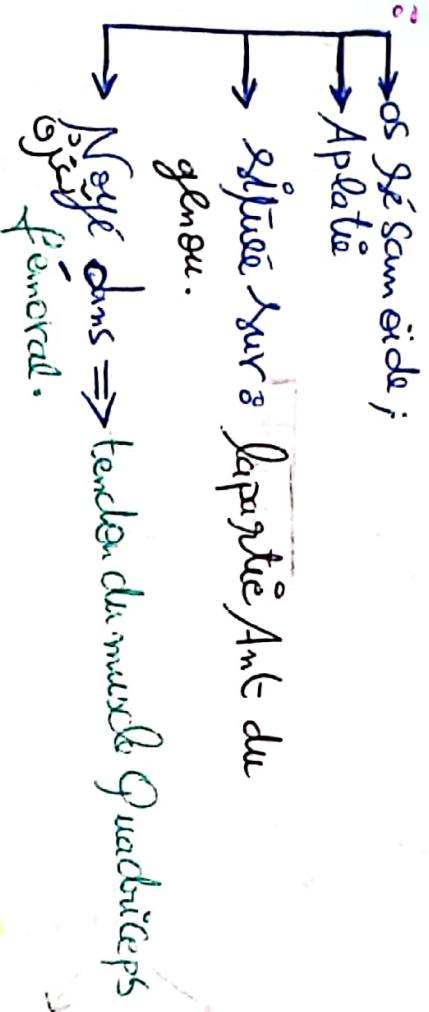 :
os sésamoïde;
Aplatie
située sur: la partie Ant du
genou.
Noyé dans => tendon du muscle Quadriceps
fémoral.